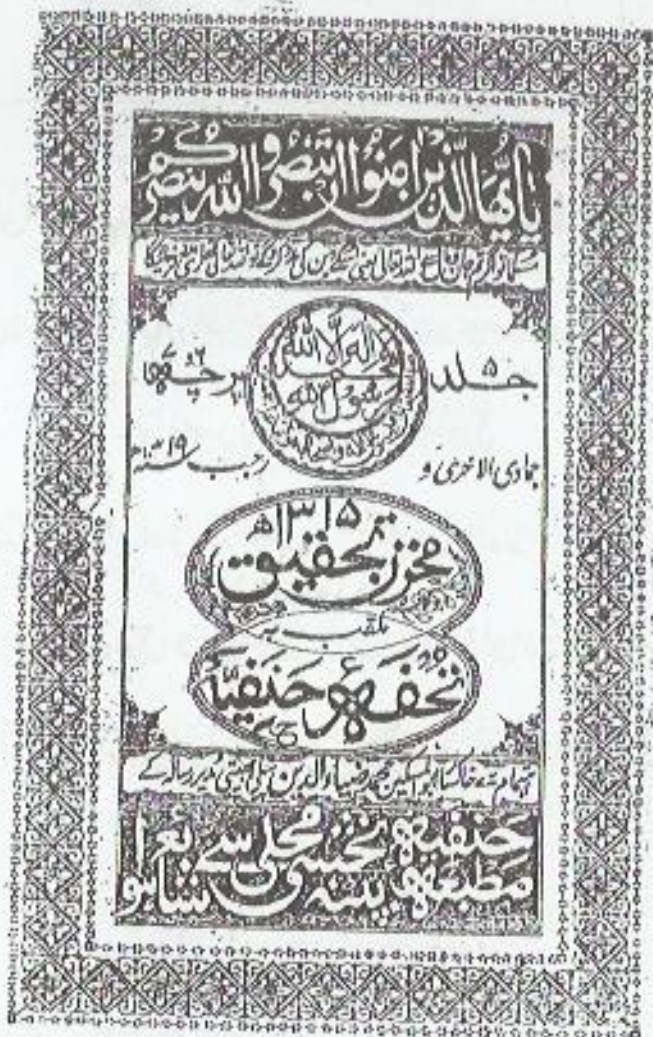 یا ایھا الذین اٰمنوا ان تنصروا اللہ ینصرکم
جلد ۵
لا الہ الا اللہ محمد رسول اللہ
پرچہ ۶ و ۷
جمادی الاخری و رجب سنہ ۱۹ھ
۱۳۱۵ھ
مخزن تحقیق
ملقب بہ
تحفہ حنفیہ
اہتمام سے خاکسار ابو المسکین محمد ضیاء الدین مدیر رسالہ کے
مطبع حنفیہ پٹنہ بخشی محلہ سے شایع ہوا